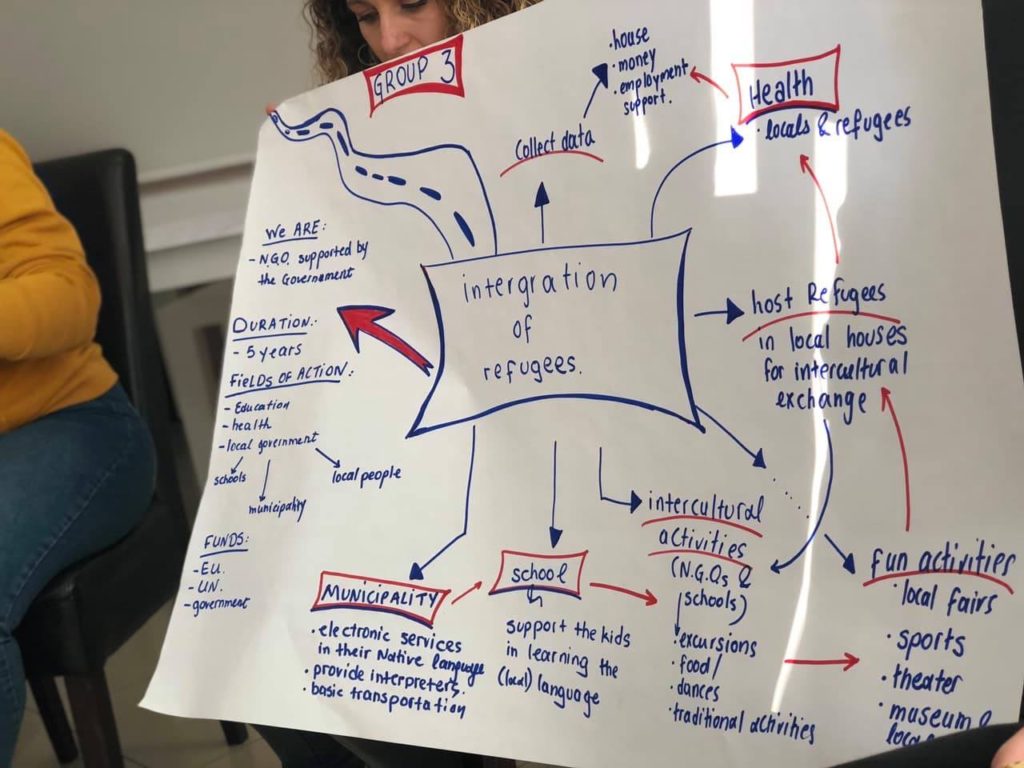 GROUP 3
We ARE:
- N.G.O. supported by
the Government
DURATION:
- 5 years
FieLDS OF ACTION:
- Education
- health
- local government
schools
municipality
local people
FUNDS:
- EU.
- UN.
- government
intergration
of
refugees.
Collect data
• house
• money
• employment
support.
Health
• locals & refugees
host Refugees
in local houses
for intercultural
exchange
MUNICIPALITY
• electronic services
in their Native language
• provide interpreters.
• basic transportation
school
support the kids
in learning the
(local) language
intercultural
activities
(N.G.Os &
schools)
excursions
• food/
• dances
• traditional activities
fun activities
• local fairs
• sports
• theater
• museum &